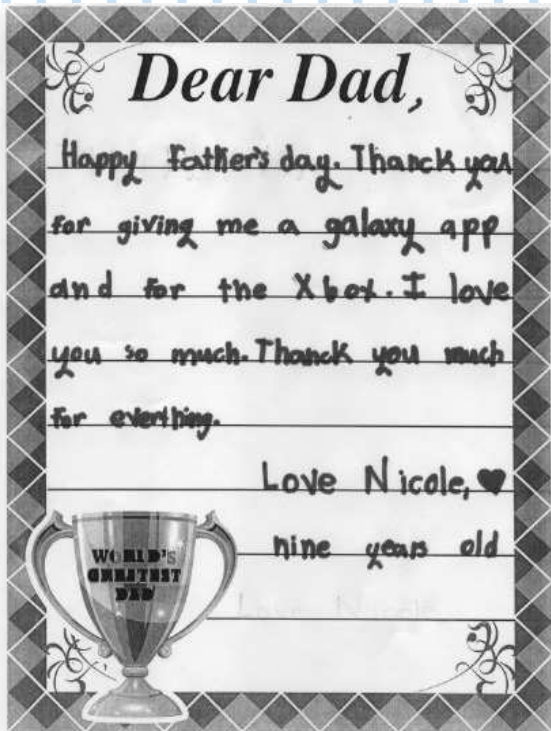 Dear Dad,
Happy Father's day. Thanck you
for giving me a galaxy app
and for the Xbox. I love
you so much. Thanck you much
for everthing.
Love Nicole, ♥
nine years old
Love Nicole
WORLD'S
GREATEST
DAD